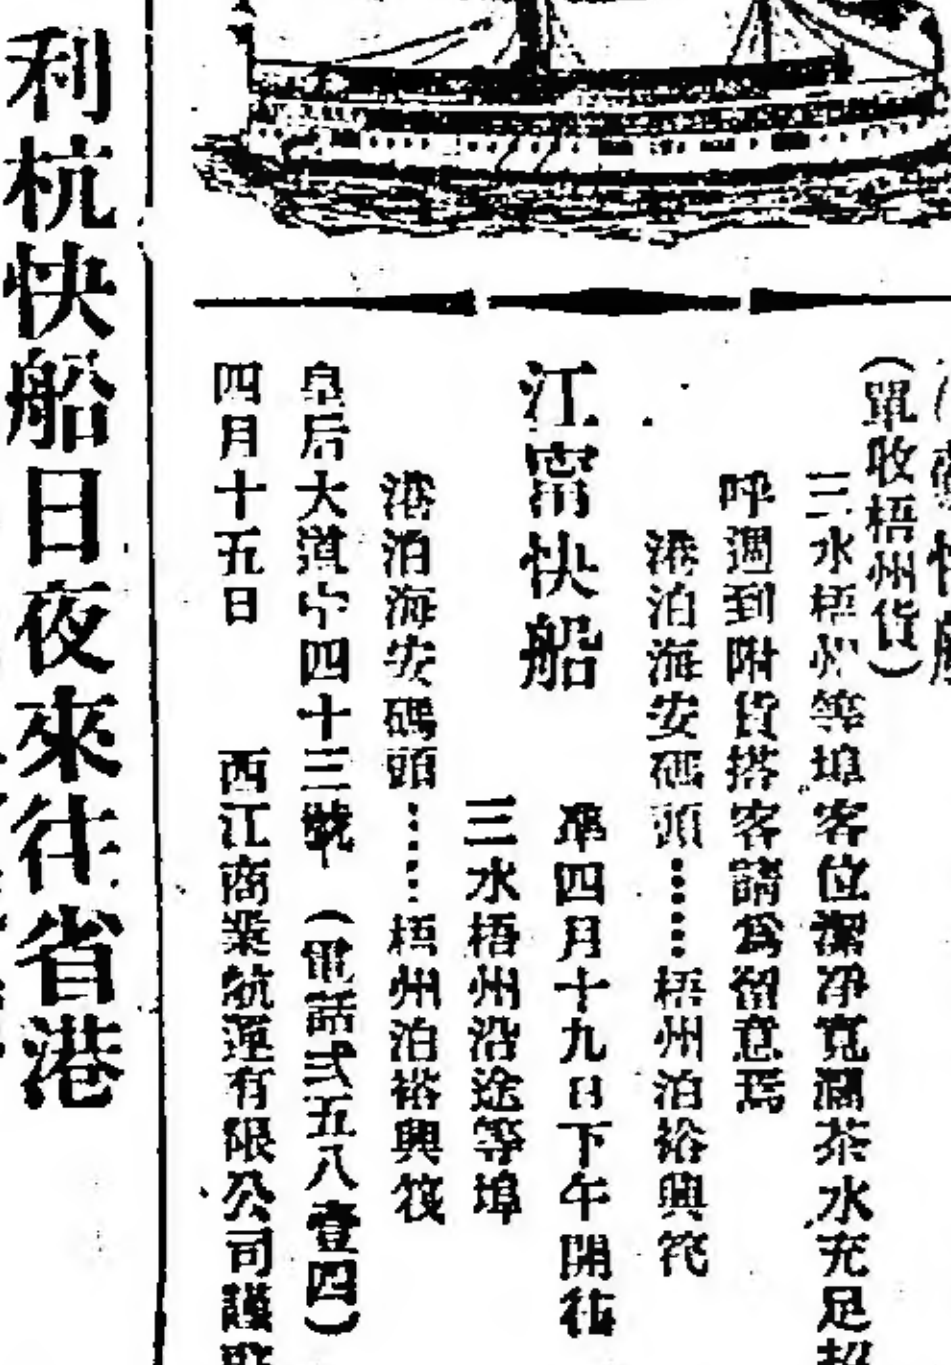 快
(單收梧州貨)
三水梧州等埠客位潔淨寬濶茶水充足招
呼週到附貨搭客請爲留意焉
港泊海安碼頭⋯⋯梧州泊裕興筏
江甯快船
準四月十九日下午開往
三水梧州沿途等埠
港泊海安碼頭⋯⋯梧州泊裕興筏
皇后大道中四十三號 (電話弍五八壹四)
四月十五日 西江商業航運有限公司謹啟
利杭快船日夜來往省港